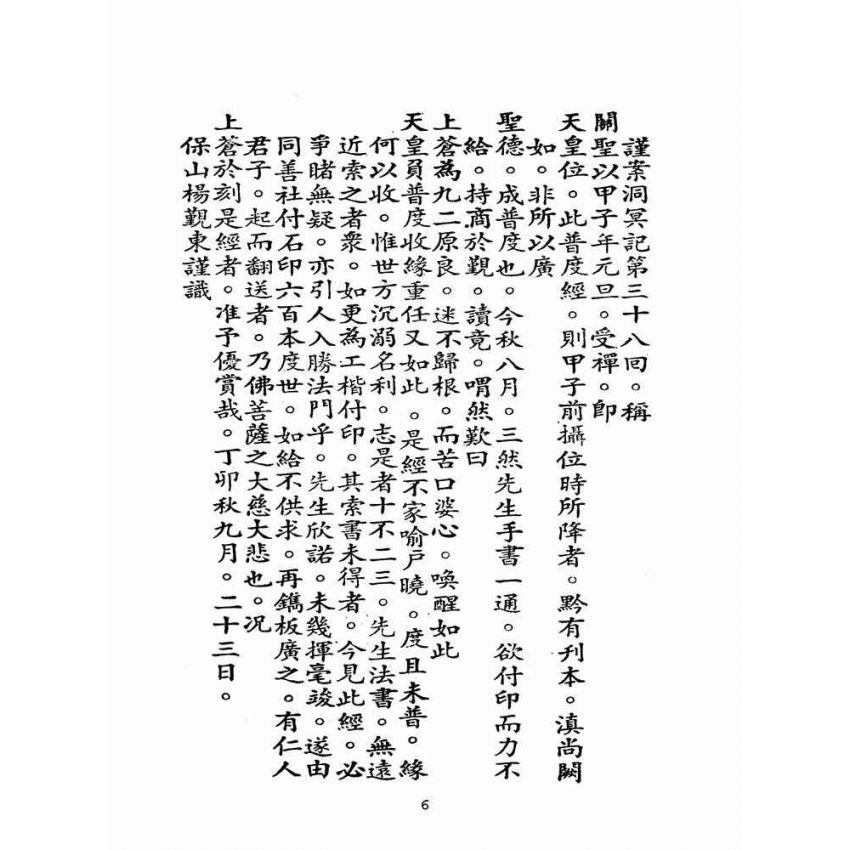 謹案洞冥記第三十八回。稱
關聖以甲子年元旦。受禪。即
天皇位。此普度經。則甲子前攝位時所降者。黔有刊本。滇尚闕
如。非所以廣
聖德。成普度也。今秋八月。三然先生手書一通。欲付印而力不
給。持商於覲。讀竟。喟然歎曰
上蒼為九二原良。迷不歸根。而苦口婆心。喚醒如此
天皇員普度收緣重任又如此。是經不家喻戶曉。度且未普。緣
何以收。惟世方沉溺名利。志是者十不二三。先生法書。無遠
近索之者衆。如更為工楷付印。其索書未得者。今見此經。必
爭睹無疑。亦引人入勝法門乎。先生欣諾。未幾揮毫竣。遂由
同善社付石印六百本度世。如給不供求。再鐫板廣之。有仁人
君子。起而翻送者。乃佛菩薩之大慈大悲也。况
上蒼於刻是經者。准予優賞哉。丁卯秋九月。二十三日。
保山楊覲東謹識
6